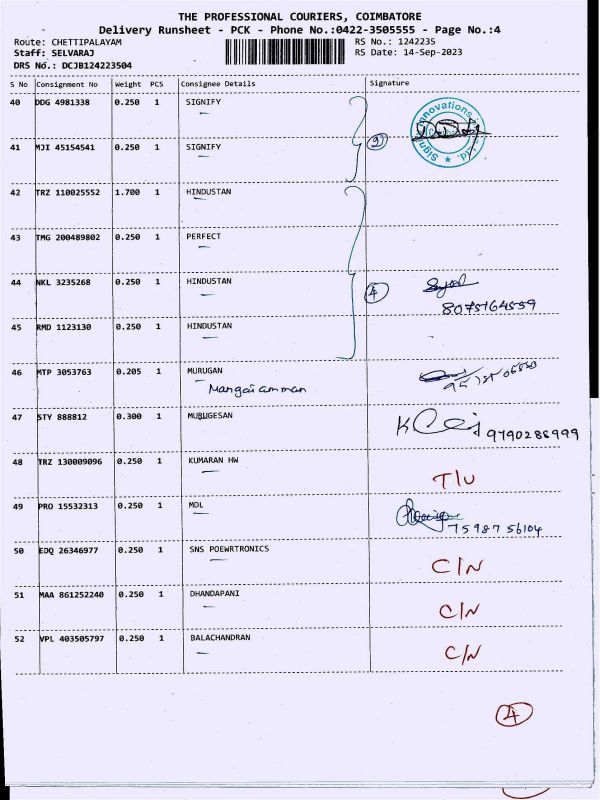 THE PROFESSIONAL COURIERS, COIMBATORE
Delivery Runsheet - PCK - Phone No.:0422-3505555 - Page No.:4
Route: CHETTIPALAYAM RS No.: 1242235
Staff: SELVARAJ RS Date: 14-Sep-2023
DRS No.: DCJB124223504
S No Consignment No Weight PCS Consignee Details Signature
40 DDG 4981338 0.250 1 SIGNIFY
41 MJI 45154541 0.250 1 SIGNIFY
2
42 TRZ 110025552 1.700 1 HINDUSTAN
43 TMG 200489802 0.250 1 PERFECT
44 NKL 3235268 0.250 1 HINDUSTAN
4
8075164559
45 RMD 1123130 0.250 1 HINDUSTAN
46 MTP 3053763 0.205 1 MURUGAN
Mangai amman
47 STY 888812 0.300 1 MURUGESAN
9790288999
48 TRZ 130009096 0.250 1 KUMARAN HW
T/U
49 PRO 15532313 0.250 1 MDL
75987 56104
50 EDQ 26346977 0.250 1 SNS POEWRTRONICS
C/N
51 MAA 861252240 0.250 1 DHANDAPANI
C/N
52 VPL 403505797 0.250 1 BALACHANDRAN
C/N
4